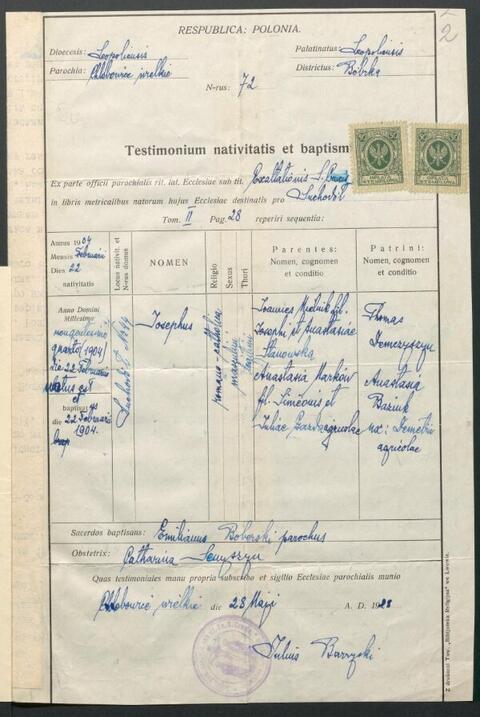 2
RESPUBLICA: POLONIA.
Dioecesis: Leopoliensis
Palatinatus: Leopoliensis
Parochia: Chlebowice wielkie
Districtus: Bóbrka
N-rus: 72
Testimonium nativitatis et baptism
Ex parte officii parochialis rit. lat. Ecclesiae sub tit. Exaltationis S. Crucis
in libris metricalibus natorum hujus Ecclesiae destinatis pro Suchodół
Tom. II Pag. 28 reperiri sequentia:
Annus 1904
Mensis Februarii
Dies 22
nativitatis
Locus nativit. et
N-rus domus
NOMEN
Religio
Sexus
Thori
Parentes:
Nomen, cognomen
et conditio
Patrini:
Nomen, cognomen
et conditio
Anno Domini
Millesimo
nongentesimo
quarto (1904)
die 22 Februarii
natus est
et
baptisat us
die 22 Februarii
1904.
Suchodół
Josephus
romano-catholica
masculin
Joannes Mielnik fil.
Josephi et Anastasiae
Anastasia Markow
fil. Simeonis et
Juliae agricolae
Thomas
Anastasia
Baziuk
ux: Demetrii
agricolae
Sacerdos baptisans: Emilianus Boberski parochus
Obstetrix: Catharina
Quas testimoniales manu propria subscribo et sigillo Ecclesiae parochialis munio
Chlebowice wielkie die 28 Maji A. D. 1928
Julius
Z drukarni Tow. „Bibljoteka Religijna" we Lwowie.